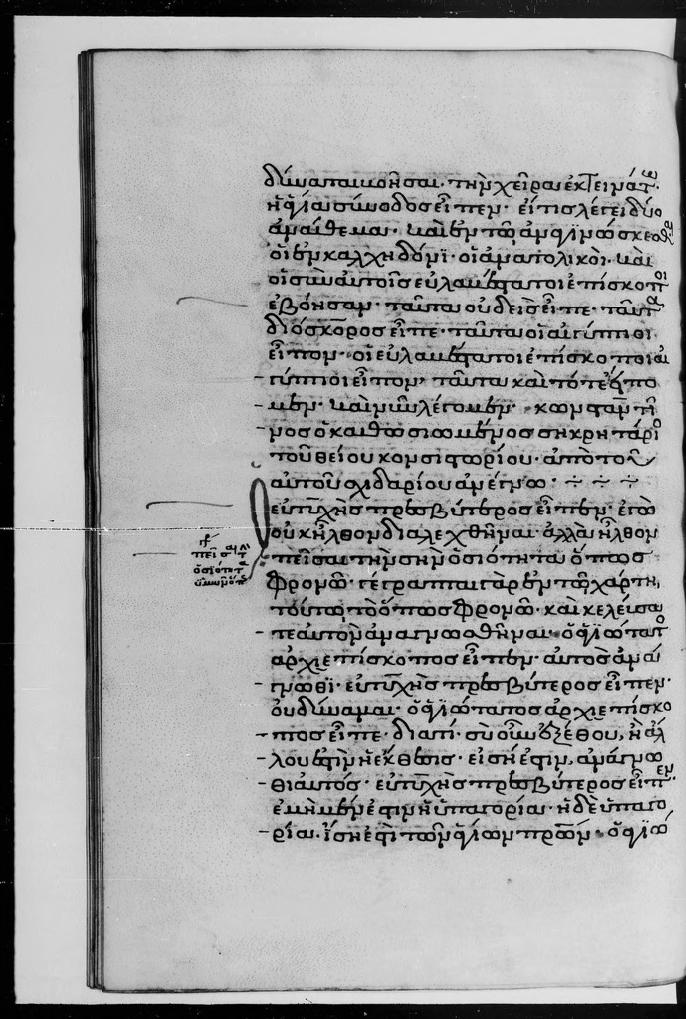 δύναται βοῆσαι· τὴν χεῖρα ἐκτεινάτω·
ἡ ἁγία σύνοδος εἶπεν· εἴ τις λέγει δύο
ἀνάθεμα· καὶ ἐν τῷ ἀναγινώσκεσθαι
οἱ ἐν καλχηδόνϊ· οἱ ἀνατολικοὶ· καὶ
οἱ σὺν αὐτοῖς εὐλαβέστατοι ἐπίσκοποι
ἐβόησαν· ταῦτα οὐδεὶς εἶπε· ταῦτα
διόσκορος εἶπε· ταῦτα οἱ αἰγύπτιοι
εἶπον· οἱ εὐλαβέστατοι ἐπίσκοποι αἰ
γύπτιοι εἶπον· ταῦτα καὶ τότε εἴπο
μεν· καὶ νῦν λέγομεν· κωνσταντῖ
νος ὁ καθωσιωμένος σηκρητάριος
τοῦ θείου κονσιστωρίου· ἀπὸ τοῦ
αὐτοῦ σχιδαρίου ἀνέγνω
εὐτυχὴς πρεσβύτερος εἶπεν· ἐγὼ
οὐκ ἦλθον διαλεχθῆναι ἀλλὰ ἦλθον
πεῖσαι τὴν σὴν ὁσιότητα ὅπως
φρονῶ· γέγραπται γὰρ ἐν τῷ χάρτῃ
τούτῳ τὸ ὅπως φρονῶ· καὶ κελεύσα
τε αὐτὸν ἀναγνωσθῆναι· ὁ ἁγιώτατος
ἀρχιεπίσκοπος εἶπεν· αὐτὸς ἀνά
γνωθϊ· εὐτυχὴς πρεσβύτερος εἶπεν·
οὐ δύναμαι· ὁ ἁγιώτατος ἀρχιεπίσκο
πος εἶπε· διατί· σὺ οὖν ἐξέθου, ἢ ἄλ
λου ἐστὶν ἡ ἔκθεσις· εἰ σή ἐστιν, ἀνάγνω
θι αὐτός· εὐτυχὴς πρεσβύτερος εἶπεν
ἐμὴ μέν ἐστιν ἡ ὑπαγορία· ἡ δὲ ὑπαγο
ρία· ἴση ἐστὶ τῶν ἁγίων πρῶν· ὁ ἁγιώ
πεῖσαι
ὁσιότητα